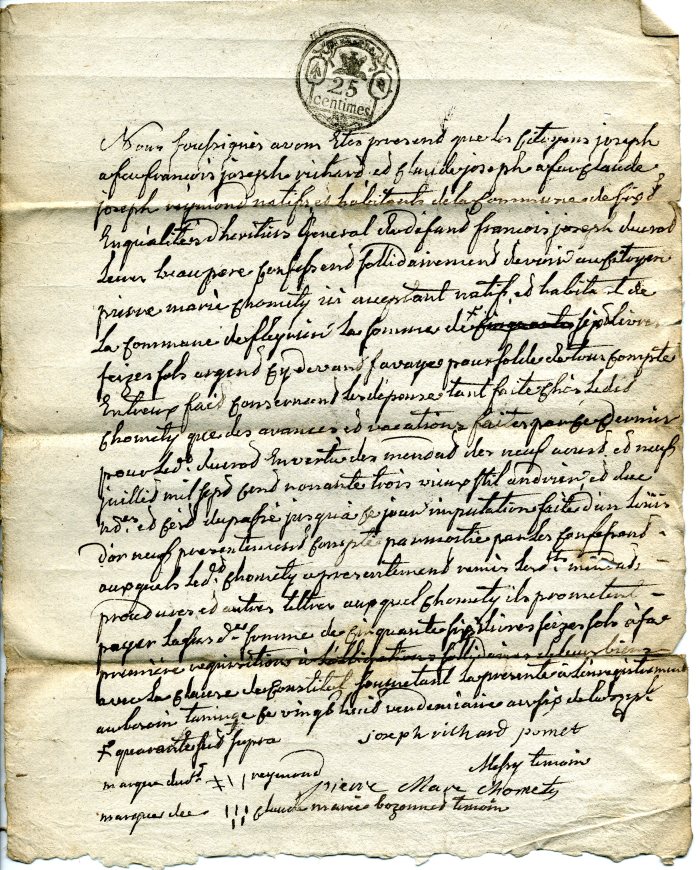 25
centimes
Nous soussignés avons Etes presend que les Citoyens joseph
a feu francois joseph richard ed Claude joseph a feu Claude
joseph reymond natifs et habitants de la Commune de sixd
En qualité d'heritiers General du défand francois joseph ducrod
Leur beau pere Confessend sollidairement devoir au Citoyen
prisne marie Chomety ici acceptant natif, ed habitant de
La Commune de La somme de + cinquante sixd livres
seizes sols argend Cy devand savoye pour solde de tous compte
Entreux faid Consernend les dépense tant faite Chés ledid
Chomety que des avances ed vacations faites par Ce dernier
pour led. ducrod En vertu des mendad des neuf aousd, ed neuf
juilled mil sepd Cend nonante trois vieux stil
ed Ced du passé jusqua Ce jour imputation faite d'un Loüis
Dor neuf presentemend Compté par les Confessand
auxquels led. Chomety a presentement remis lesd. mendad
procedures ed autres tittres auxquel Chomety ils promettent
payer La somme de Cinquante six livres seizes sols a sa
premiere requisitions à L'obligations solidaires de leur biens
avec La Clause de Constitud soumetant la presente à L'enregistrement
au besoin taninge Ce vingt huid vendemiaire an six de la
+ quarante sepd supra
joseph richard pomet
temoin
marque dud. reymond
pierre Marie Chomety
marque de Claude marie bozonned temoin